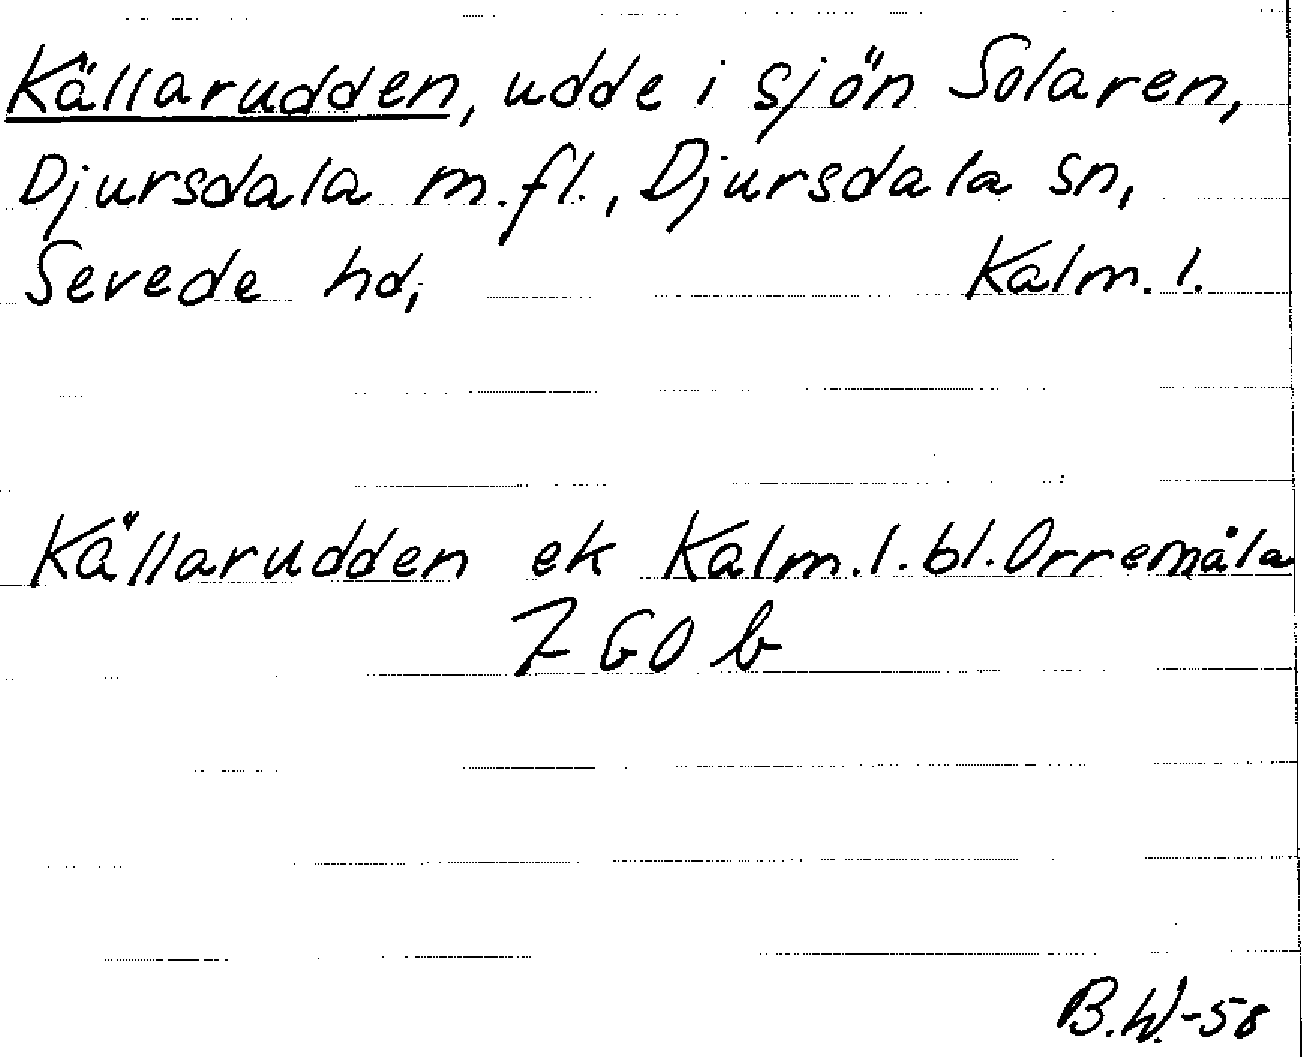 Källarudden, udde i sjön Solaren,
Djursdala m.fl., Djursdala sn,
Sevede hd, Kalm. l.
Källarudden ek Kalm. l. bl. Orremåla
7 GO b
B.W.-58